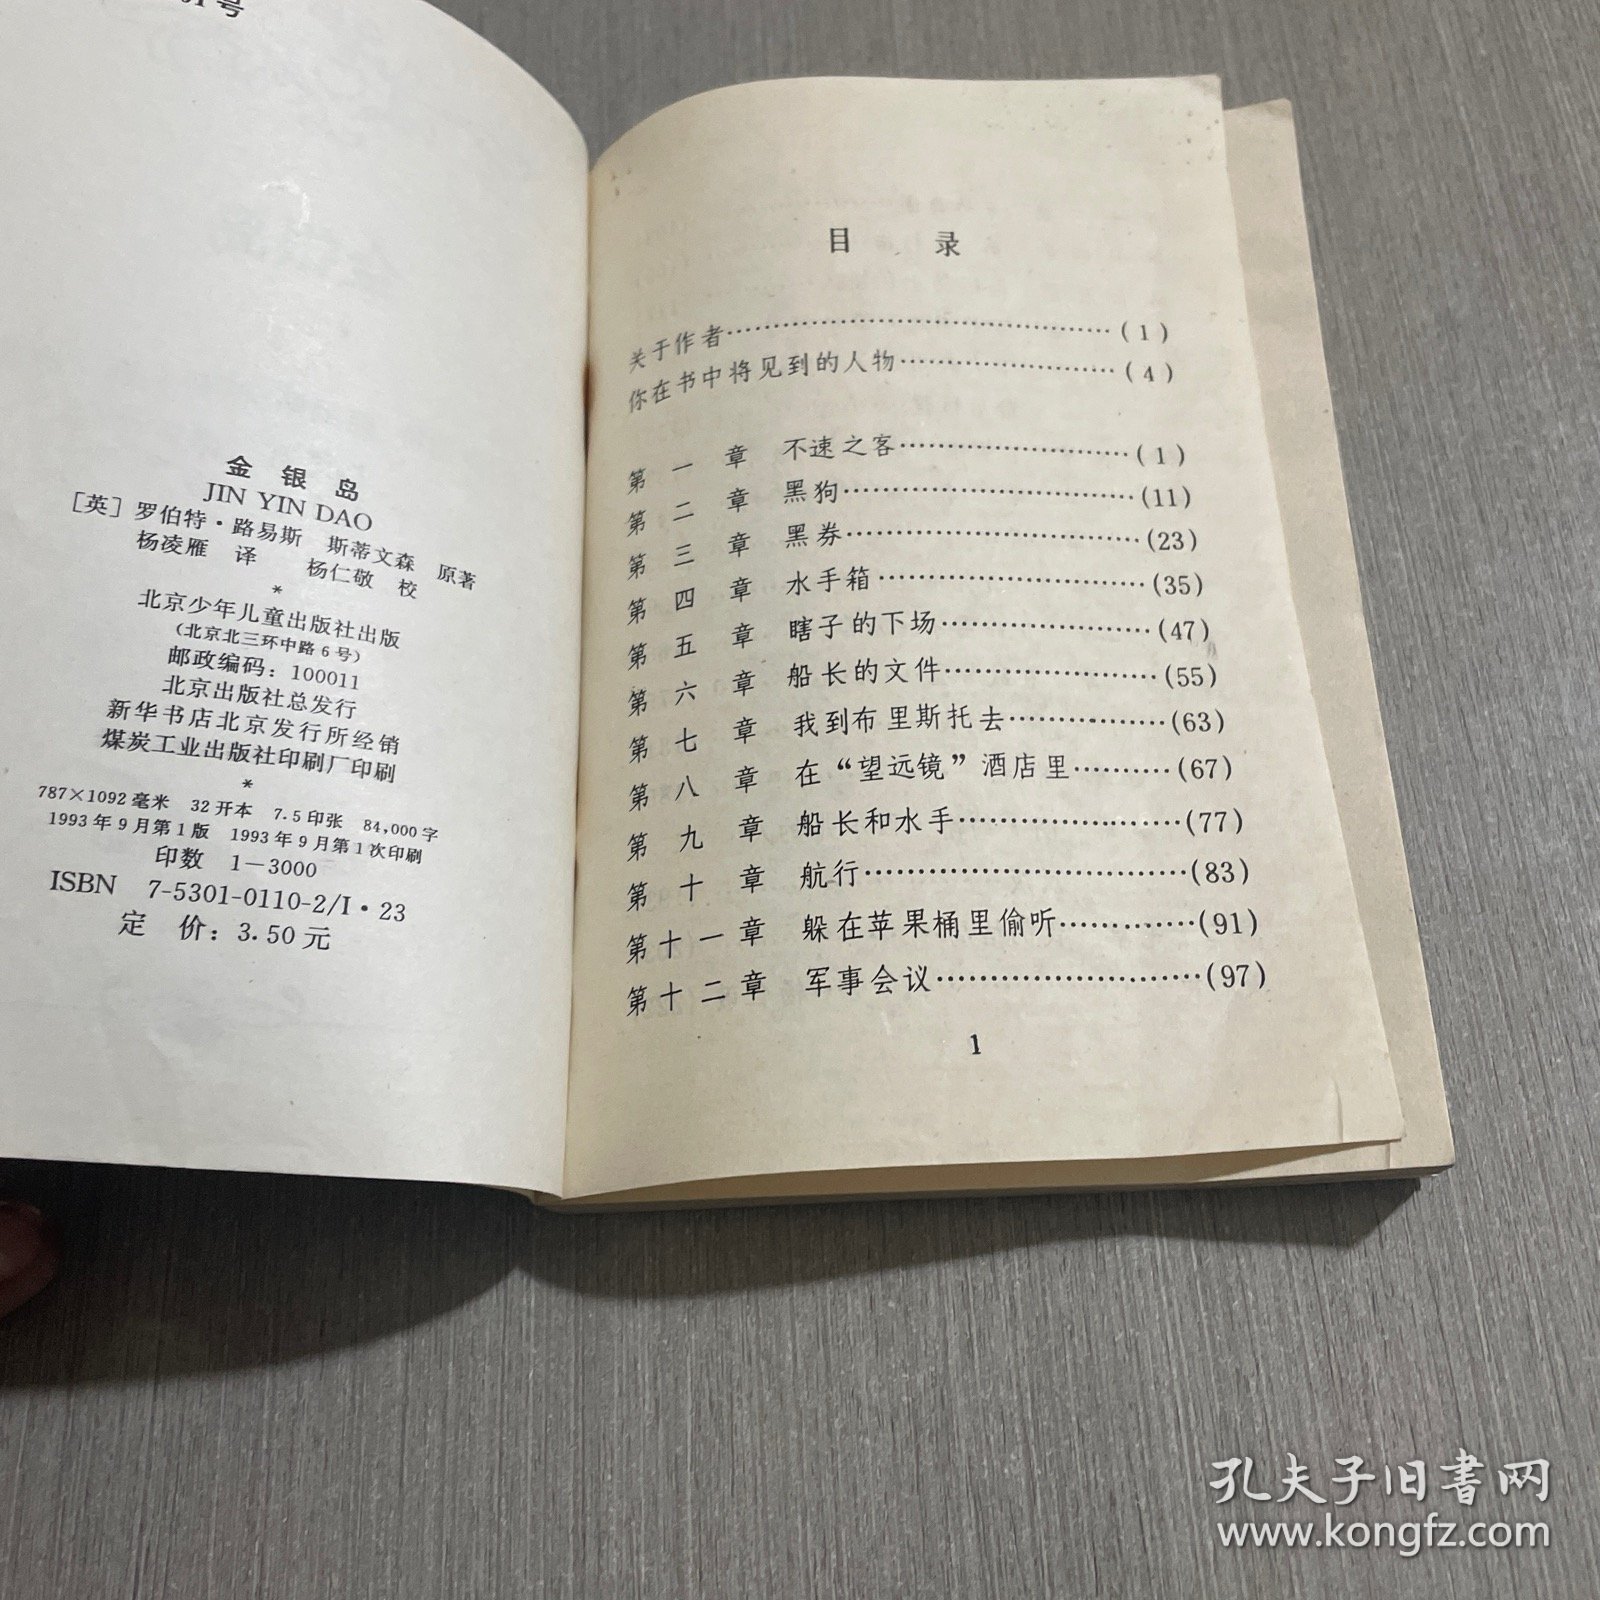 号
金银岛
JIN YIN DAO
[英] 罗伯特·路易斯 斯蒂文森 原著
杨凌雁 译 杨仁敬 校
*
北京少年儿童出版社出版
(北京北三环中路6号)
邮政编码：100011
北京出版社总发行
新华书店北京发行所经销
煤炭工业出版社印刷厂印刷
*
787×1092毫米 32开本 7.5印张 84,000字
1993年9月第1版 1993年9月第1次印刷
印数 1—3000
ISBN 7-5301-0110-2/I·23
定 价：3.50元
目 录
关于作者……………………………………(1)
你在书中将见到的人物……………………(4)
第一章 不速之客……………………(1)
第二章 黑狗…………………………(11)
第三章 黑券…………………………(23)
第四章 水手箱………………………(35)
第五章 瞎子的下场…………………(47)
第六章 船长的文件…………………(55)
第七章 我到布里斯托去……………(63)
第八章 在“望远镜”酒店里………(67)
第九章 船长和水手…………………(77)
第十章 航行…………………………(83)
第十一章 躲在苹果桶里偷听…………(91)
第十二章 军事会议……………………(97)
1
孔夫子旧书网
www.kongfz.com